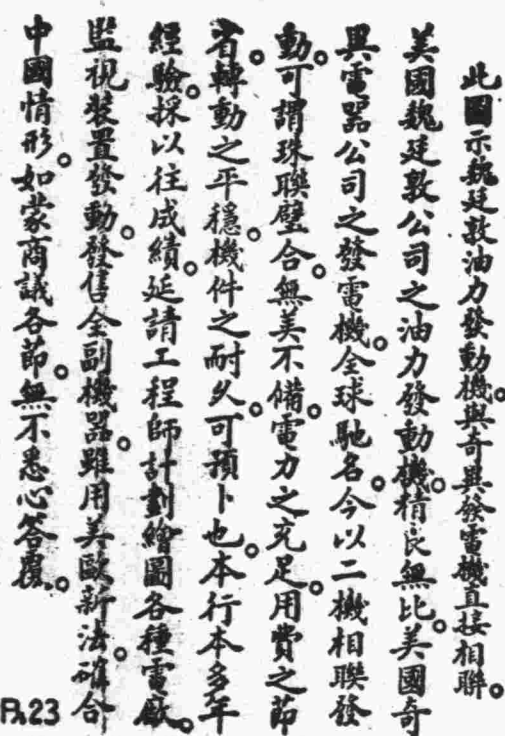 此圖示魏廷敦油力發動機。與奇異發電機直接相聯。
美國魏廷敦公司之油力發動機。精良無比。美國奇
異電器公司之發電機。全球馳名。今以二機相聯發
動。可謂珠聯璧合。無美不備。電力之充足。用費之節
省。轉動之平穩。機件之耐久。可預卜也。本行本多年
經驗。採以往成績。延請工程師計劃繪圖各種電廠。
監視裝置發動。發售全副機器。雖用美歐新法。確合
中國情形。如蒙商議各節。無不悉心答覆。
23